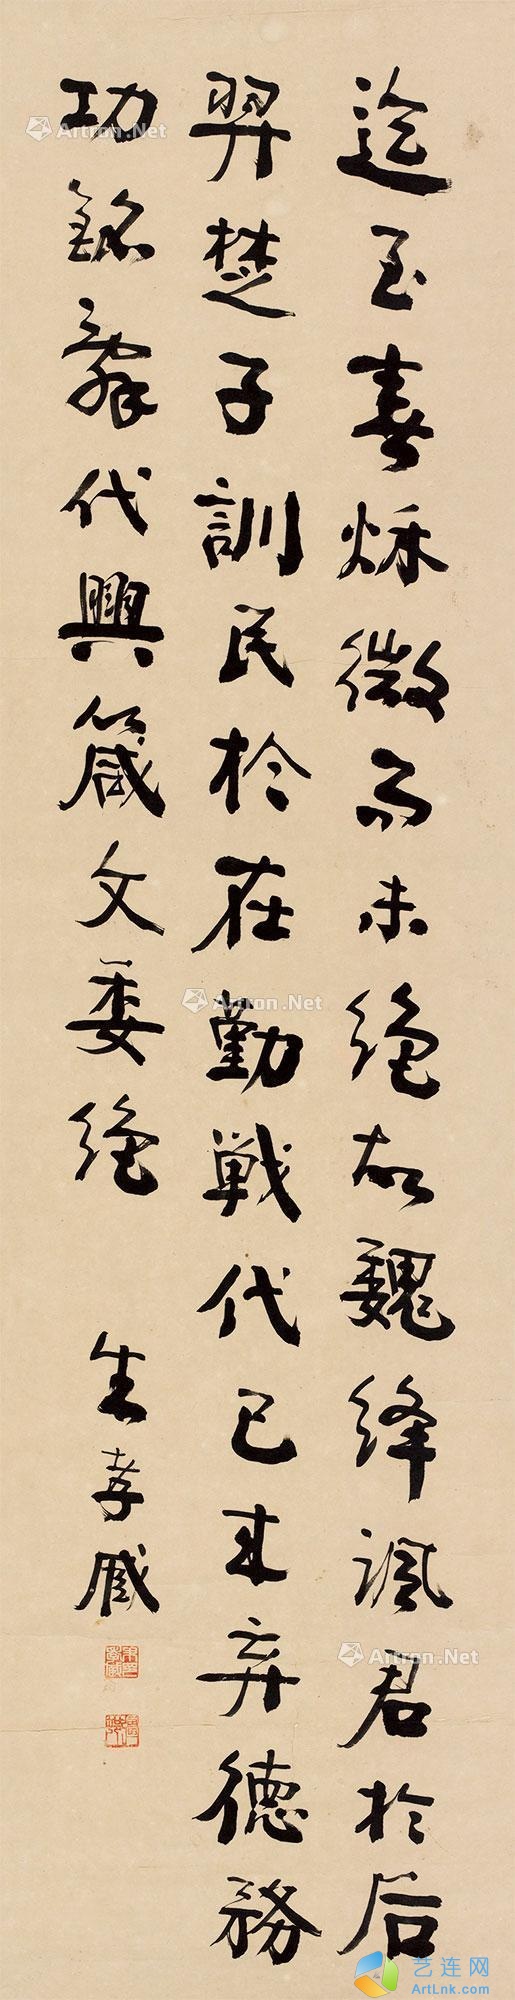 迄至春秌微而未絶故魏绛諷君於后
羿楚子訓民於在勤戰代已来弃德務
功銘辭代興箴文委絶 朱孝臧
Artron.Net
Artron.Net
Artron.Net
Artron.Net
艺连网
ArtLnk.com